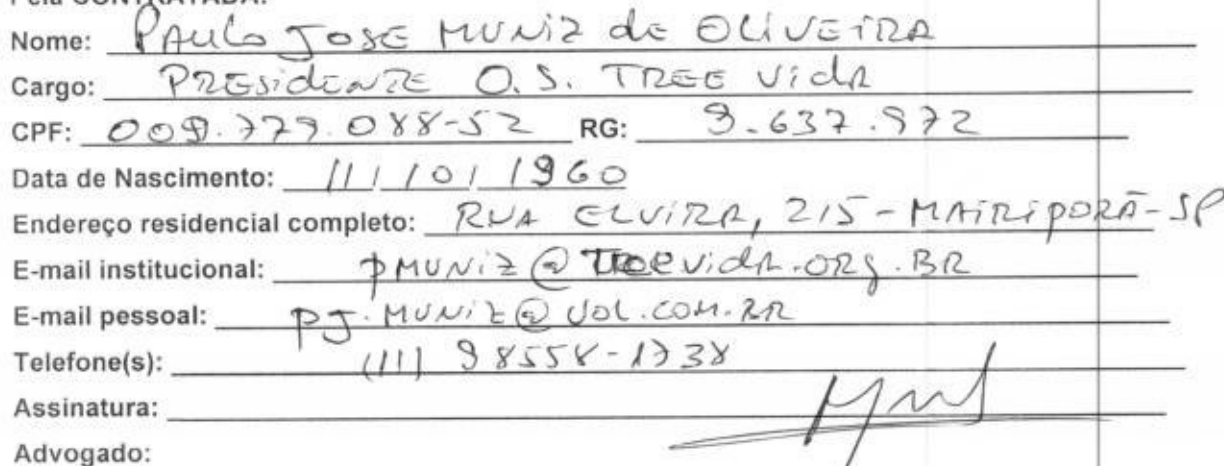 Pela CONTRATADA:
Nome: PAULO JOSE MUNIZ de OLIVEIRA
Cargo: PRESidENTE O.S. TREE VidA
CPF: 009.779.088-52 RG: 9.637.972
Data de Nascimento: 11/01/1960
Endereço residencial completo: RUA ELVIRA, 215 - MAIRIPORÃ - SP
E-mail institucional: PMUNIZ@TREEvidA.ORG.BR
E-mail pessoal: PJ.MUNIZ@UOL.COM.BR
Telefone(s): (11) 98558-1738
Assinatura:
Advogado: